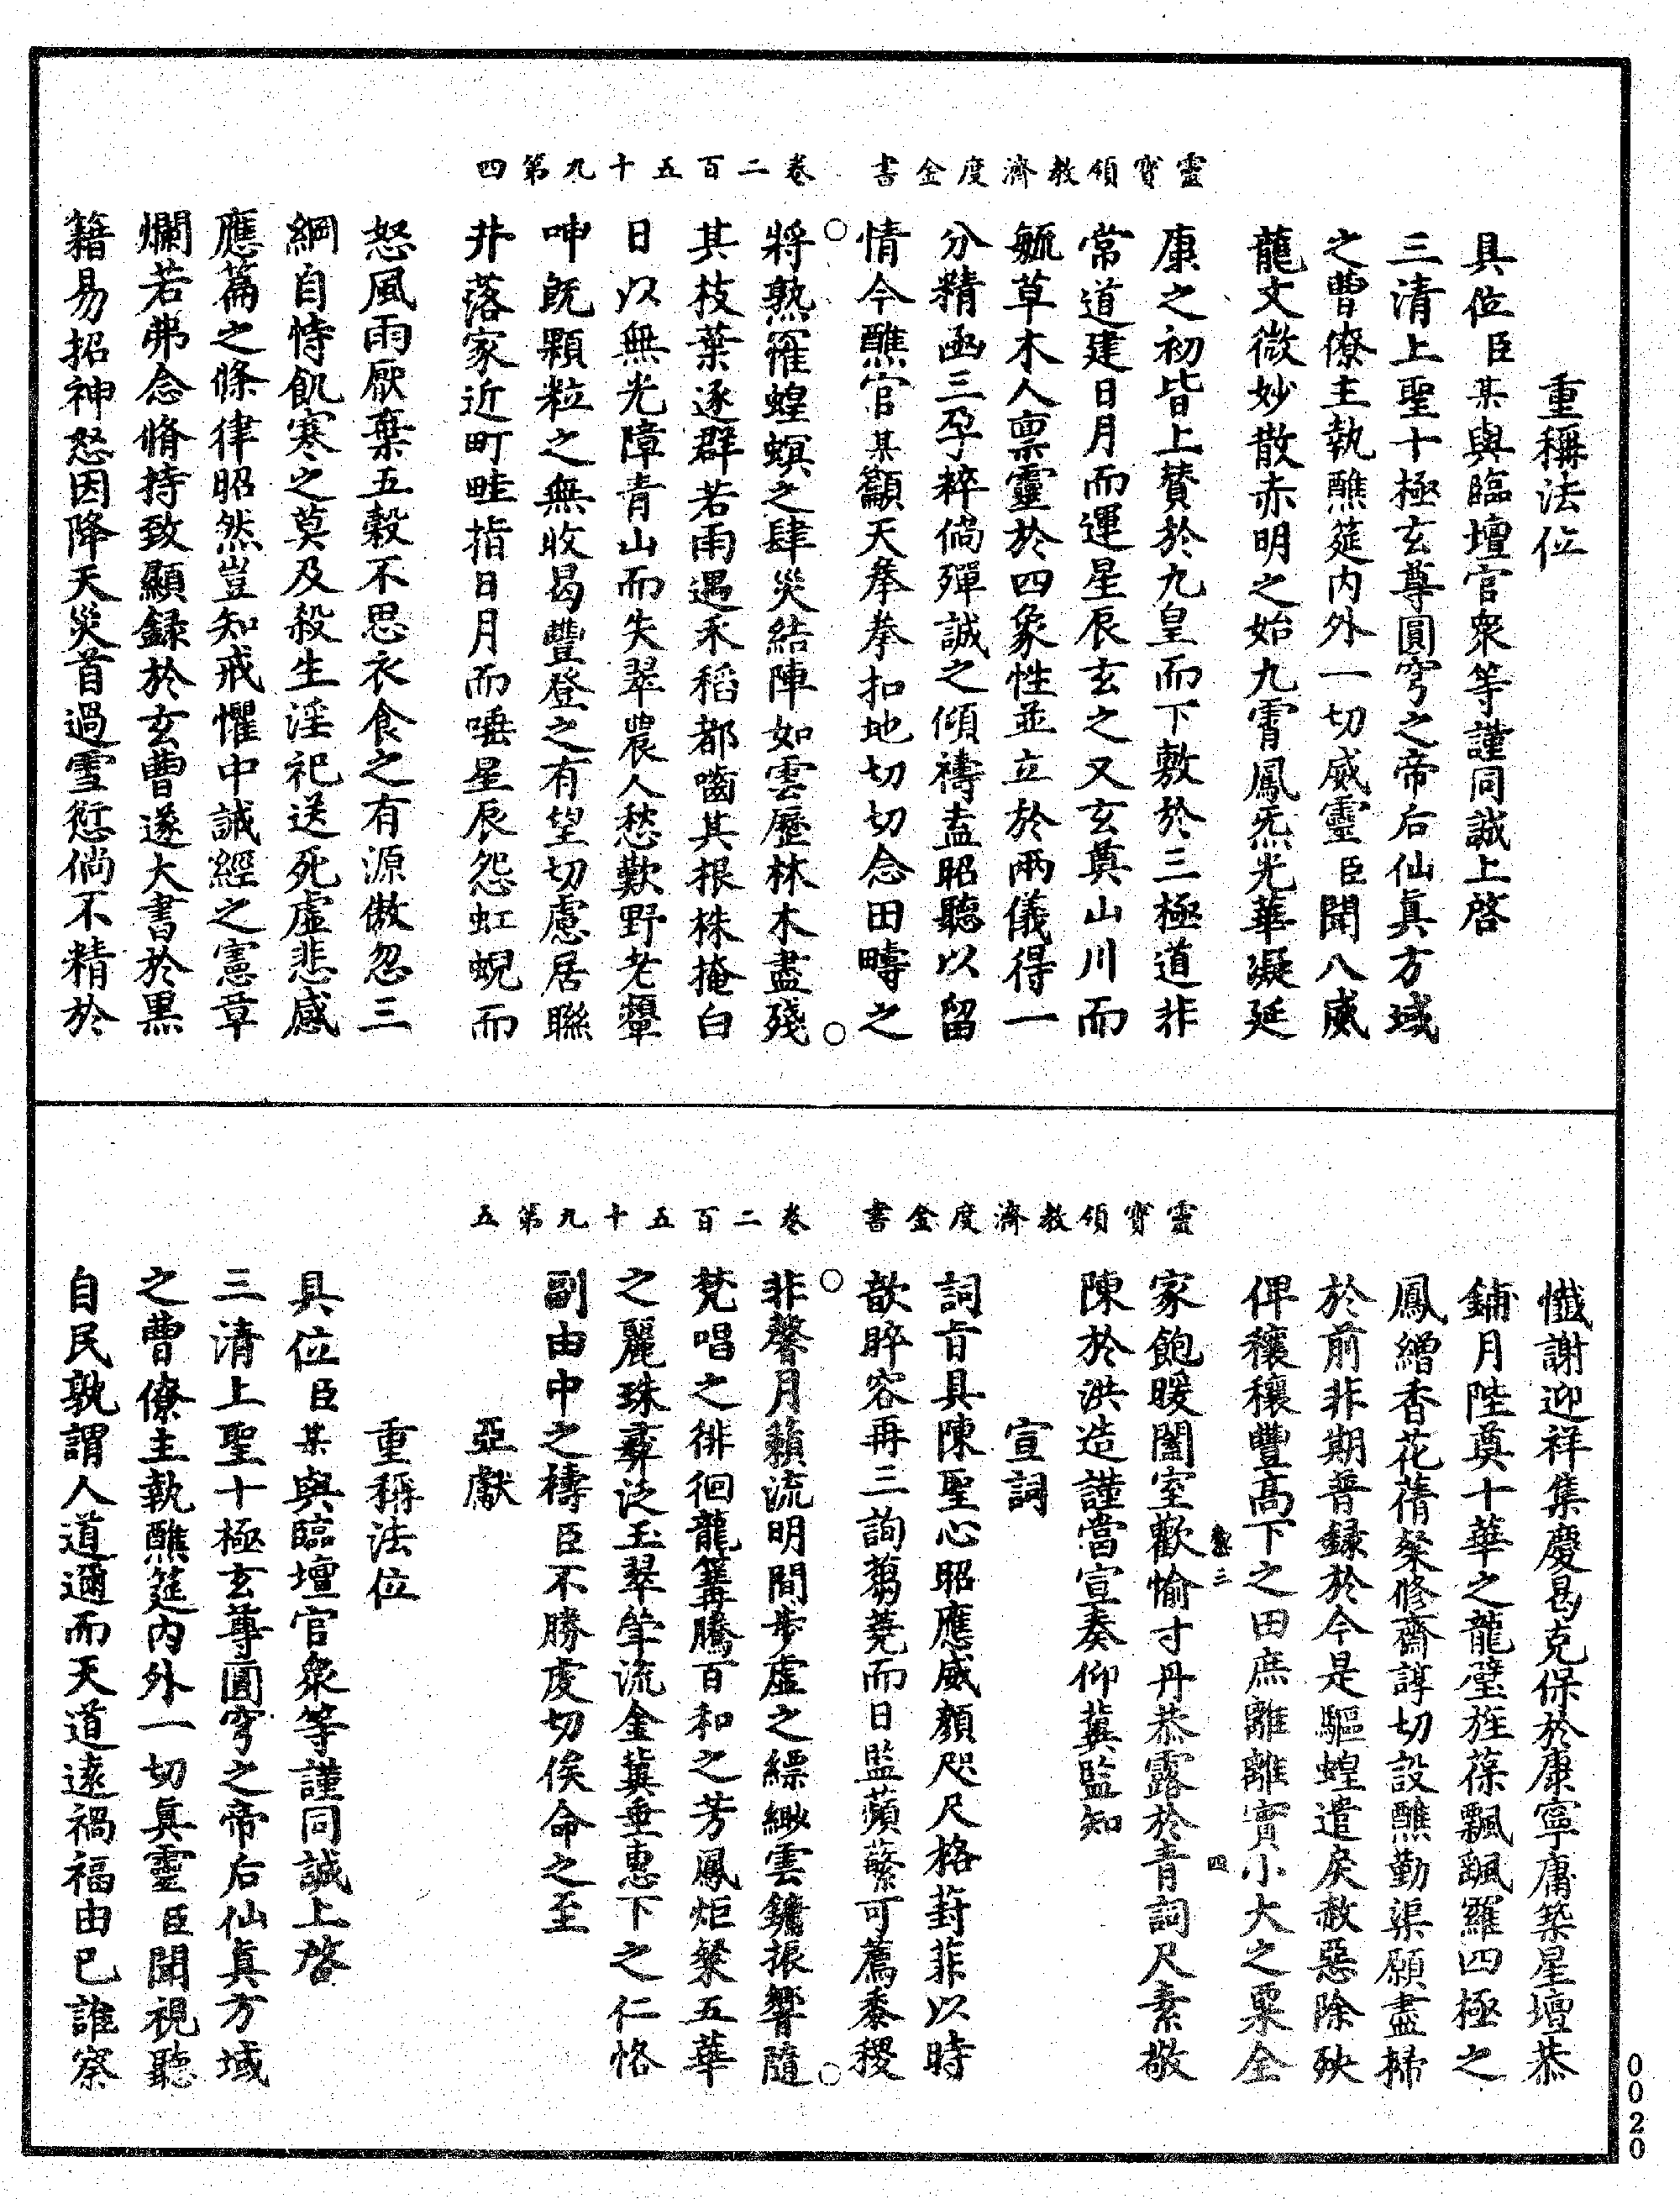 靈寶領教濟度金書　卷二百五十九第四
重稱法位
具位臣某與臨壇官衆等謹同誠上啓
三清上聖十極玄尊圓穹之帝后仙真方域
之曹僚主執醮筵内外一切威靈臣聞八威
龍文微妙散赤明之始九霄鳳炁光華凝延
康之初皆上賛於九皇而下敷於三極道非
常道建日月而運星辰玄之又玄奠山川而
毓草木人禀靈於四象性並立於兩儀得一
分精函三孕粹倘殫誠之傾禱盍昭聽以留
情今醮官某籲天拳拳扣地切切念田疇之
將熟罹蝗螟之肆災結陣如雲歷林木盡殘
其枝葉逐群若雨遇禾稻都嚙其根株掩白
日以無光障青山而失翠農人愁歎野老顰
呻旣顆粒之無收曷豐登之有望切慮居聯
井落家近町畦指日月而唾星辰怨虹蜺而
怒風雨厭棄五穀不思衣食之有源傲忽三
綱自恃飢寒之莫及殺生淫祀送死虛悲感
應篇之條律昭然豈知戒懼中誡經之憲章
爛若弗念脩持致顯録於玄曹遂大書於黒
籍易招神怒因降天災首過雪愆倘不精於
靈寶領教濟度金書　卷二百五十九第五
懺謝迎祥集慶曷克保於康寧庸築星壇恭
鋪月陛奠十華之龍璧旌葆飄颻羅四極之
鳳繒香花蒨粲修齋諄切設醮勤渠願盡掃
於前非期普録於今是驅蝗遣戾赦惡除殃
俾穰穰豐高下之田庶離離實小大之粟全
家飽暖闔室歡愉寸丹恭露於青詞尺素敬
陳於洪造謹當宣奏仰冀監知
宣詞
詞旨具陳聖心昭應威顏咫尺格葑菲以時
歆睟容再三詢蒭蕘而日監蘋蘩可薦黍稷
非馨月籟流明間步虛之縹緲雲鏞振響隨
梵唱之徘徊龍篝騰百和之芳鳳炬粲五華
之麗珠彝泛玉翠斝流金冀垂惠下之仁恪
副由中之禱臣不勝虔切俟命之至
亞獻
重稱法位
具位臣某與臨壇官衆等謹同誠上啓
三清上聖十極玄尊圓穹之帝后仙真方域
之曹僚主執醮筵内外一切真靈臣聞視聽
自民孰謂人道邇而天道遠禍福由己誰察
三
四
0020